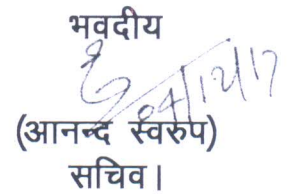 भवदीय
04/12/17
(आनन्द स्वरुप)
सचिव।